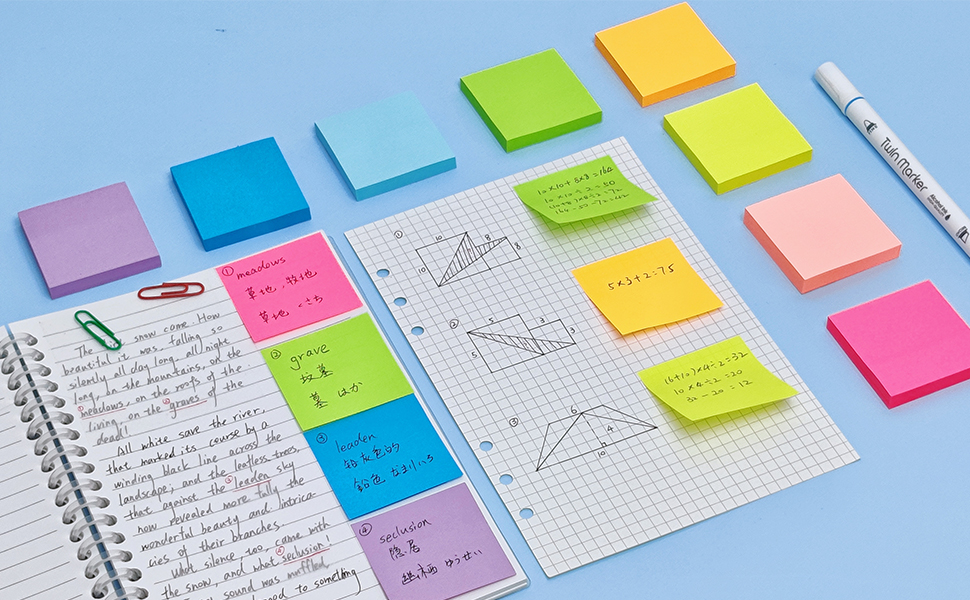 The snow came. How
beautiful it was, falling so
silently all day long, all night
long, on the mountains, on the
② meadows, on the roofs of the
living, on the ② graves of the
dead!
All white save the river,
that marked its course by a
winding black line across the
landscape; and the leafless trees,
that against the ③ leaden sky
now revealed more fully the
wonderful beauty and intrica-
cies of their branches.
What silence, too, came with
the snow, and what ④ seclusion!
sound was muffled,
to something
① meadows
草地, 牧地
草地 くさち
② grave
坟墓
墓 はか
③ leaden
铅灰色的
鉛色 なまりいろ
④ seclusion
隐居
幽栖 ゆうせい
①
10
8
10
8
②
5
3
3
5
③
6
4
h
10
10×10+8×8=164
10×10÷2=50
(10+8)×8÷2=72
164-50-72=42
5×3÷2=7.5
(6+10)×4÷2=32
10×4÷2=20
32-20=12
Twin Marker
Alcohol Ink